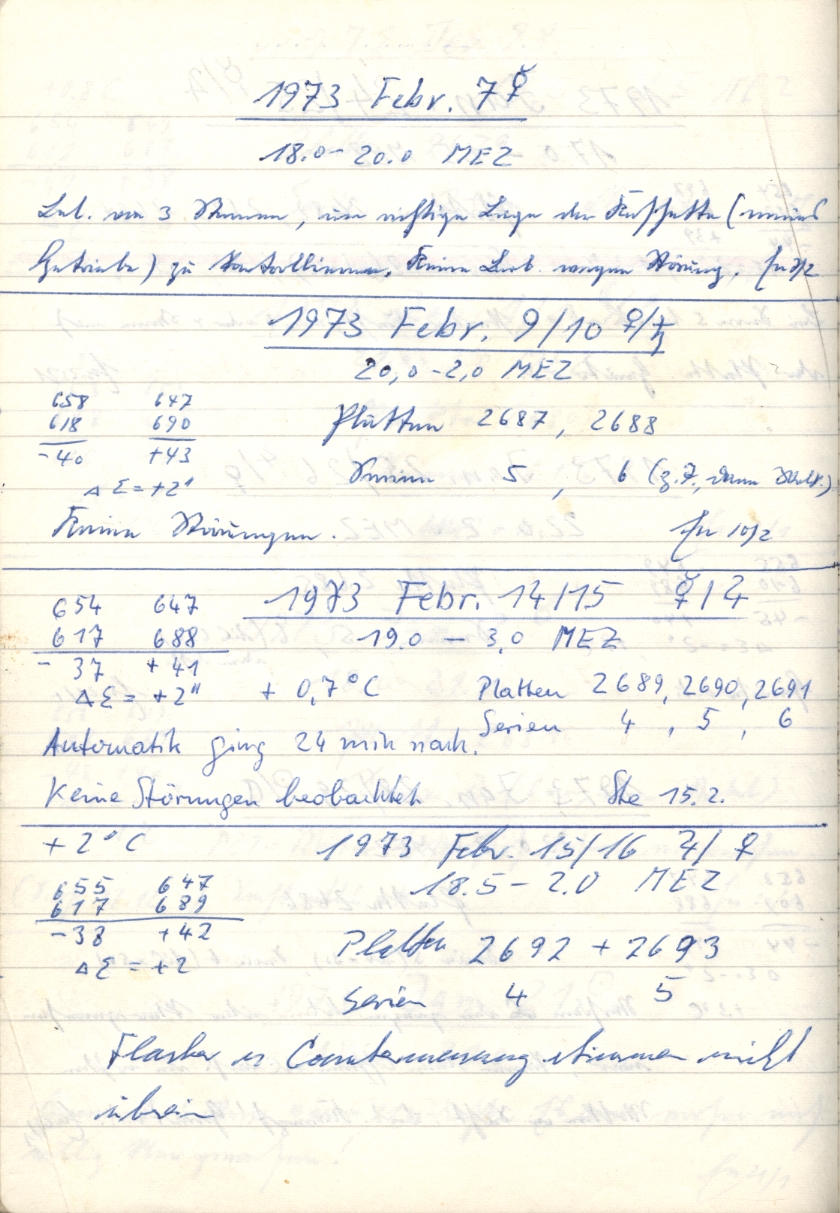 1973 Febr. 7 ☿
18.0 - 20.0 MEZ
von 3 Sternen, um richtige Lage der
Getriebe) zu kontrollieren. Keine Beob. wegen Störung. 7/2
1973 Febr. 9/10 ♀/♄
20,0 - 2,0 MEZ
658 647
618 690
-40 +43
ΔΣ = +2"
Platten 2687, 2688
Serien 5, 6 (z.T., dann
Keine Störungen. 10/2
1973 Febr. 14/15 ☿/♃
654 647
617 688
- 37 + 41
ΔΣ = +2"
19.0 — 3,0 MEZ
+ 0,7°C
Platten 2689, 2690, 2691
Serien 4, 5, 6
Automatik ging 24 min nach.
Keine Störungen beobachtet Ste 15.2.
+ 2°C
1973 Febr. 15/16 ♃/♀
18.5 - 2.0 MEZ
655 647
617 689
-38 +42
ΔΣ = +2
Platten 2692 + 2693
Serien 4 5
stimmen nicht
überein